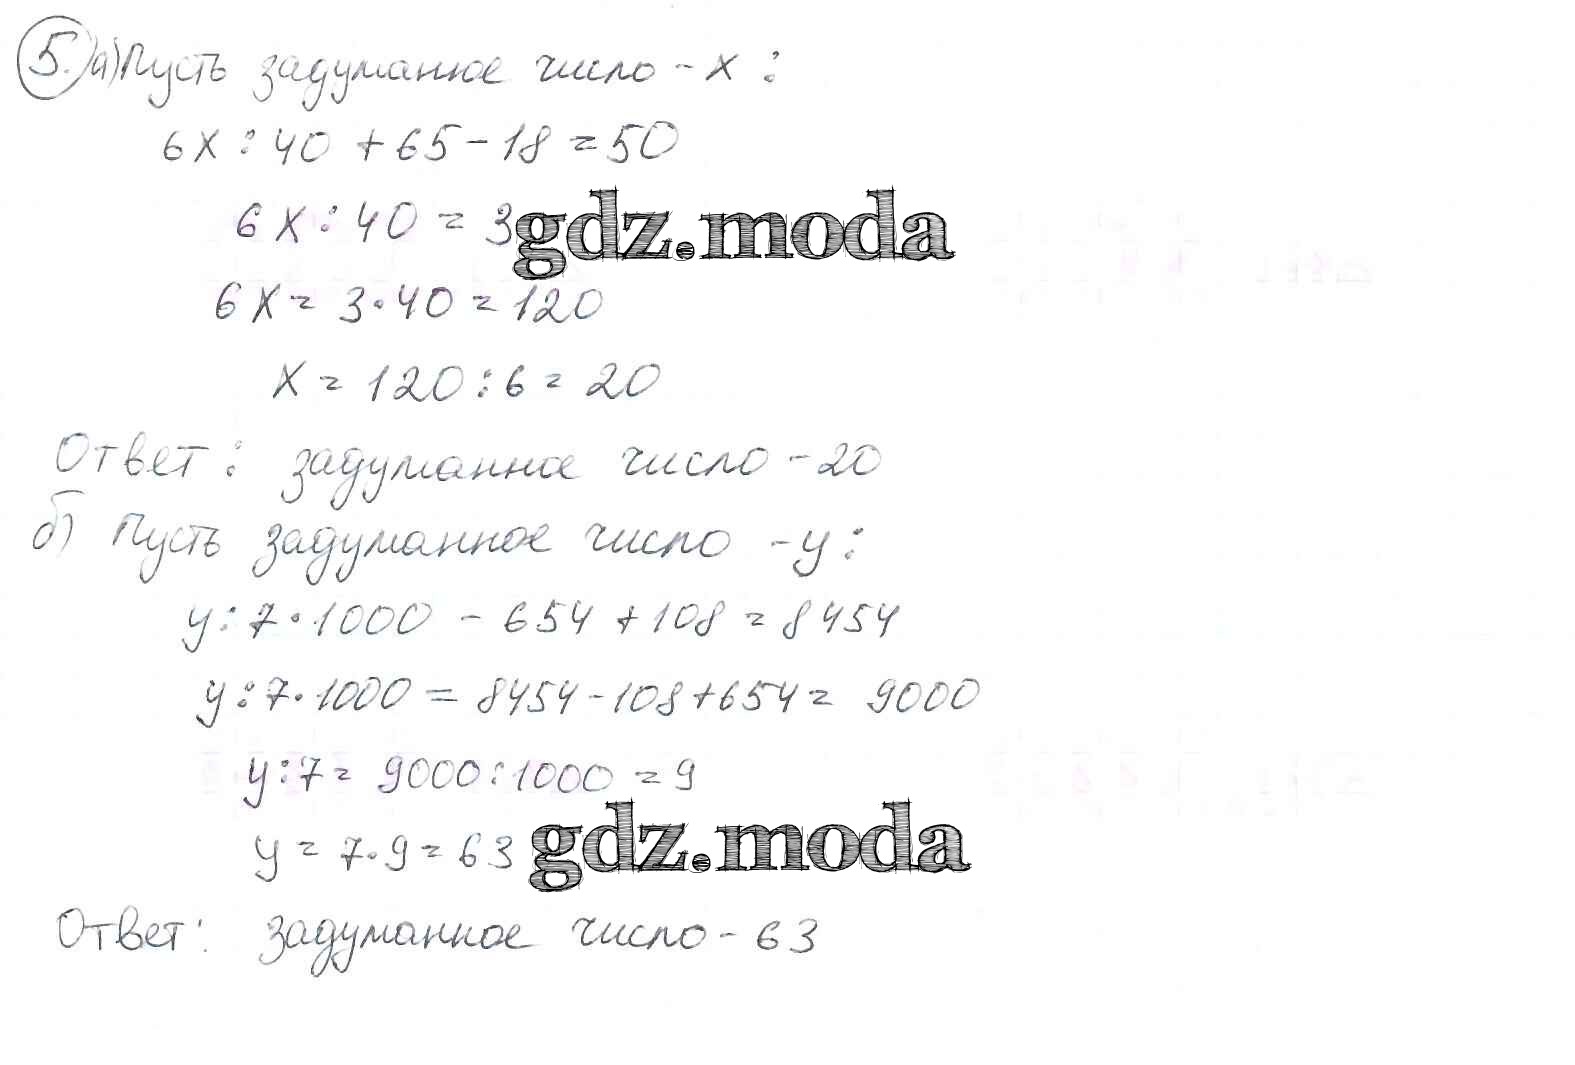 5. а) Пусть задуманное число - x :
6x : 40 + 65 - 18 = 50
6x : 40 = 3
gdz.moda
6x = 3 · 40 = 120
x = 120 : 6 = 20
Ответ : задуманное число - 20
б) Пусть задуманное число - y :
y : 7 · 1000 - 654 + 108 = 8454
y : 7 · 1000 = 8454 - 108 + 654 = 9000
y : 7 = 9000 : 1000 = 9
y = 7 · 9 = 63
gdz.moda
Ответ : задуманное число - 63